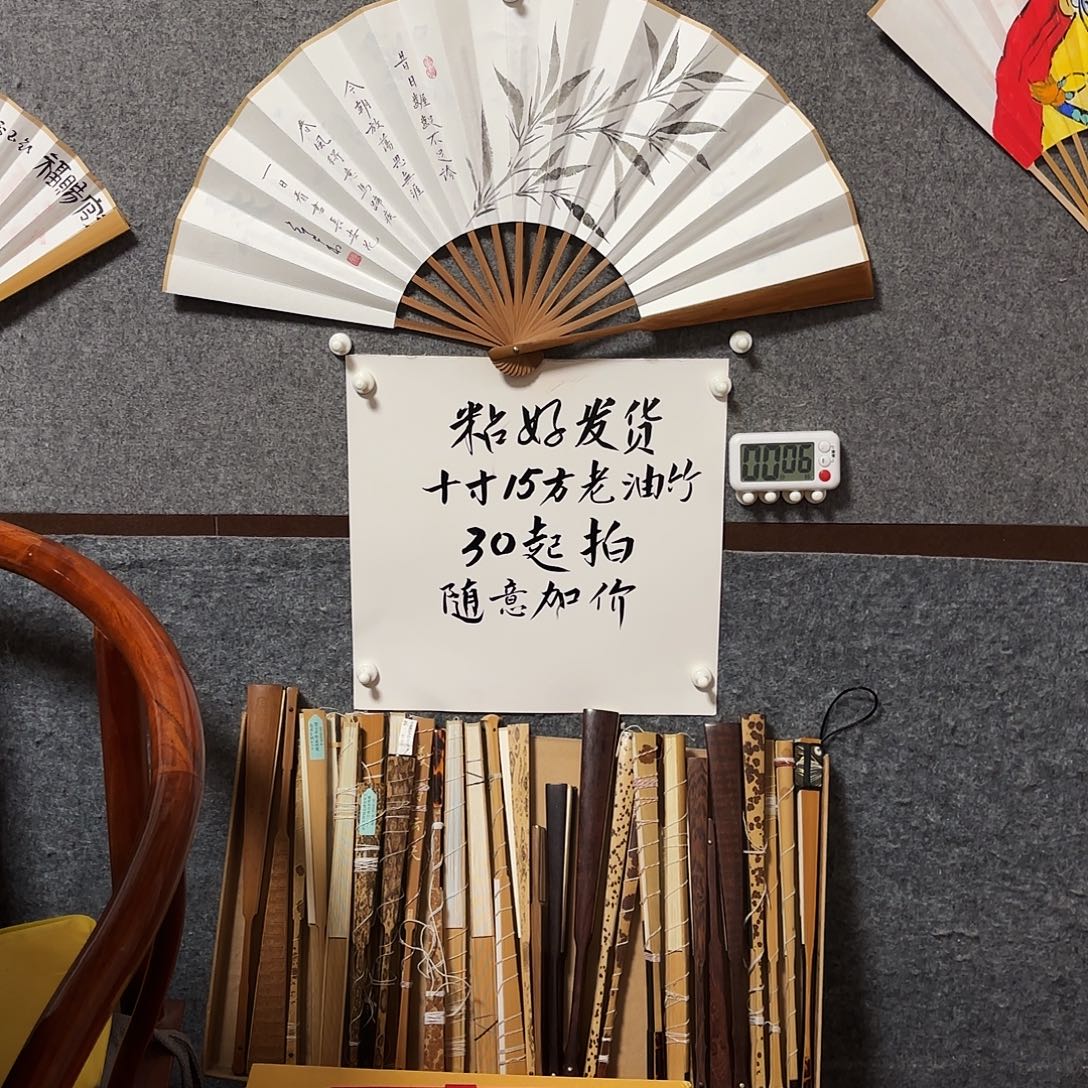 昔日龌龊不足誇
今朝放荡思無涯
春風得意馬蹄疾
一日看盡長安花
福賜
粘好发货
十寸15方老油竹
30起拍
随意加价
0006